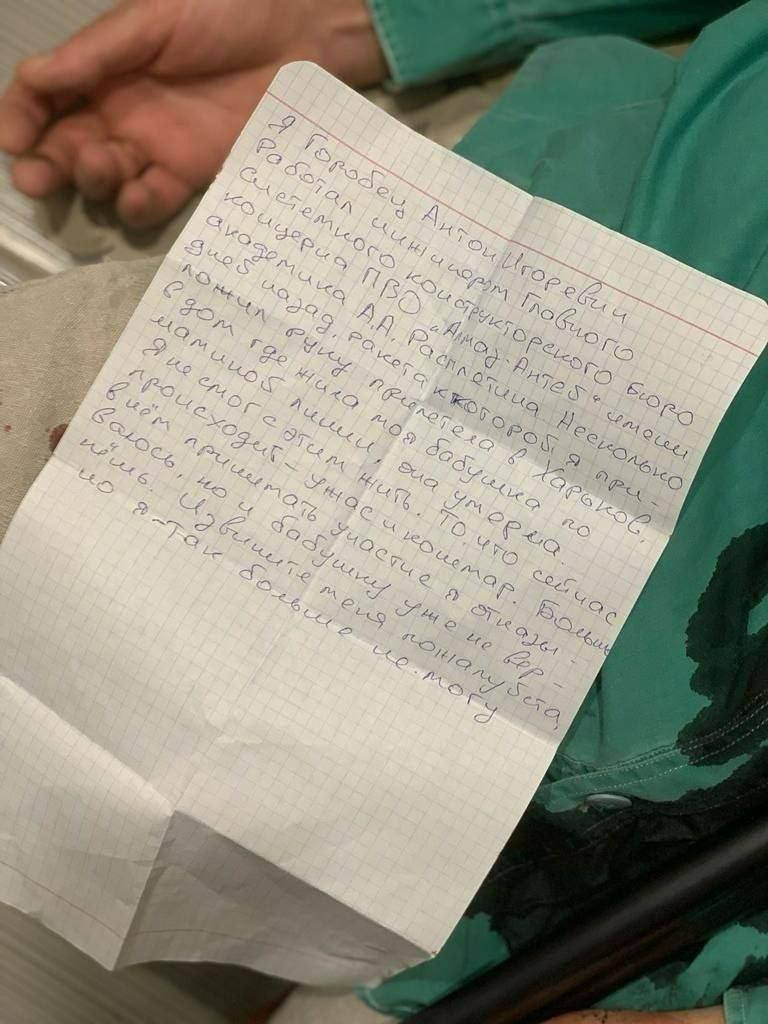 Я Горобец Антон Игоревич
Работал инжинером Главного
системного конструкторского бюро
концерна ПВО "Алмаз-Антей" имени
академика А.А. Расплетина. Несколько
дней назад, ракета к которой я при-
ложил руку прилетела в Харьков.
в дом где жила моя бабушка по
маминой линии, она умерла.
Я не смог с этим жить. То, что сейчас
происходит - ужас и кошмар. Больше
в нём принимать участие я отказы-
ваюсь, но и бабушку уже не вер-
нёшь. Извините меня пожалуйста,
но я - так больше не могу